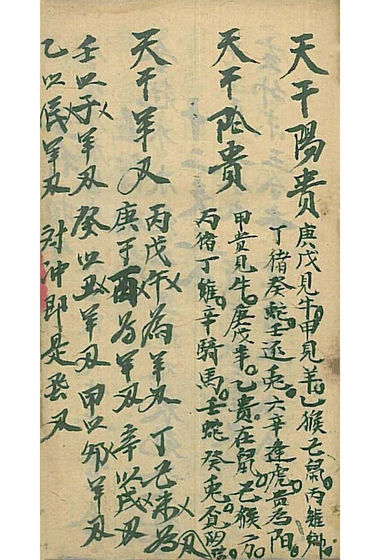 天干陽貴
庚戊見牛甲見羊乙猴己鼠丙雞鄉
丁猪癸蛇壬还兎六辛逢虎貴為阳
天干阴貴
甲貴見牛庚戊羊乙貴在鼠己猴
丙猪丁雞辛騎馬壬蛇癸兎
天干羊刃
丙戊午為羊刃丁己未為
庚于酉為羊刃辛以戌刃
壬以子羊刃癸以丑羊刃甲以卯羊刃
乙以辰羊刃対冲即是飛刃